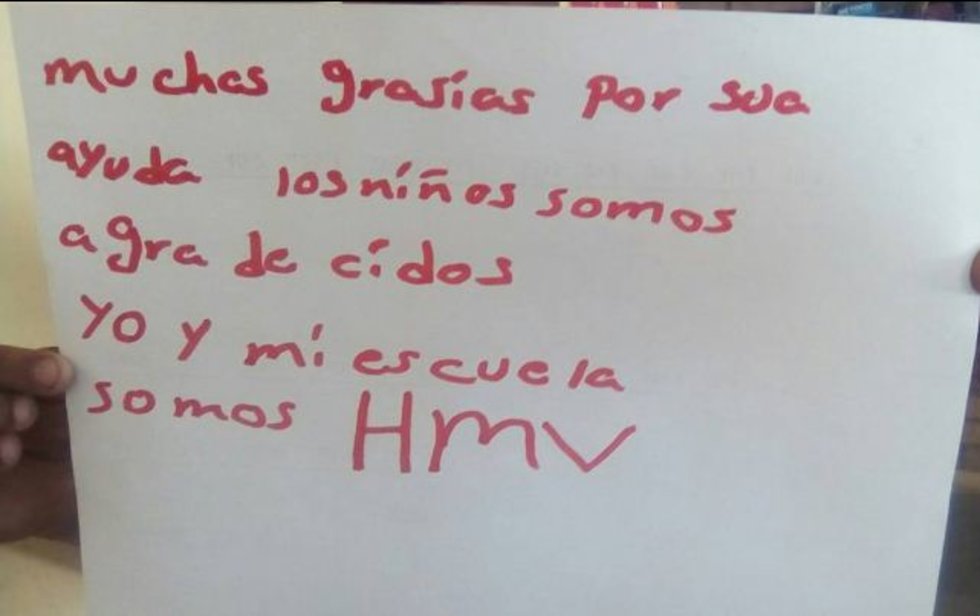 muchas grasias por sua
ayuda los niños somos
agra de cidos
yo y mi escuela
somos HMV